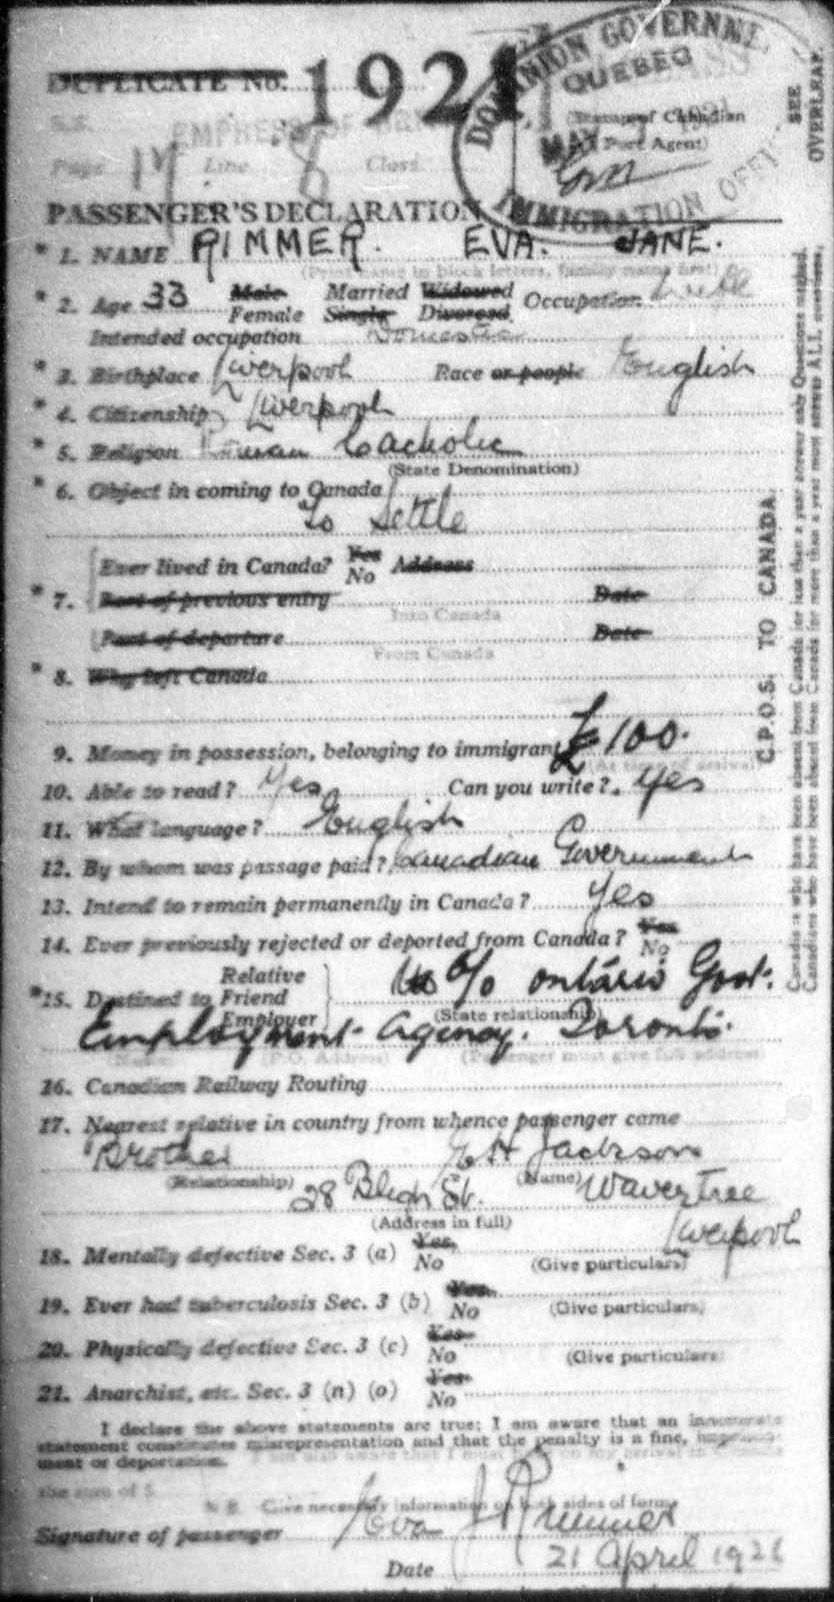 DUPLICATE No. 1921
DOMINION GOVERNME
QUEBEC
S.S. EMPRESS OF
(Stamp of Canadian
MAY 1921
Port Agent)
Page 17 Line 8 Class
IMMIGRATION OFFI
SEE OVERLEAF.
PASSENGER'S DECLARATION
* 1. NAME RIMMER. EVA. JANE.
(Print name in block letters, family name first)
* 2. Age 33 Male Married Widowed Occupation Wife
Female Single Divorced
Intended occupation Domestic
* 3. Birthplace Liverpool Race or people English
* 4. Citizenship Liverpool
* 5. Religion Roman Catholic
(State Denomination)
* 6. Object in coming to Canada
To Settle
Ever lived in Canada? Yes Address
No
* 7. Port of previous entry Date
Into Canada
Port of departure Date
From Canada
* 8. Why left Canada
9. Money in possession, belonging to immigrant £100.
(At time of arrival)
10. Able to read? Yes Can you write? Yes
11. What language? English
12. By whom was passage paid? Canadian Government
13. Intend to remain permanently in Canada? Yes
14. Ever previously rejected or deported from Canada? Yes
No
Relative
*15. Destined to Friend c/o Ontario Govt.
Employer (State relationship)
Employment Agency. Toronto.
(Name) (P.O. Address) (Passenger must give full address)
16. Canadian Railway Routing
17. Nearest relative in country from whence passenger came
Brother E H Jackson
(Relationship) (Name)
28 Bligh St. Wavertree
(Address in full) Liverpool
18. Mentally defective Sec. 3 (a) Yes
No (Give particulars)
19. Ever had tuberculosis Sec. 3 (b) Yes
No (Give particulars)
20. Physically defective Sec. 3 (c) Yes
No (Give particulars)
21. Anarchist, etc. Sec. 3 (n) (o) Yes
No
I declare the above statements are true; I am aware that an inaccurate
statement constitutes misrepresentation and that the penalty is a fine, imprison-
ment or deportation.
the sum of $
N.B. Give necessary information on both sides of form
Signature of passenger Eva J Rimmer
Date 21 April 1921
C.P.O.S. TO CANADA
Canadians who have been absent from Canada for less than a year answer only Questions marked.
Canadians who have been absent from Canada for more than a year must answer ALL questions.